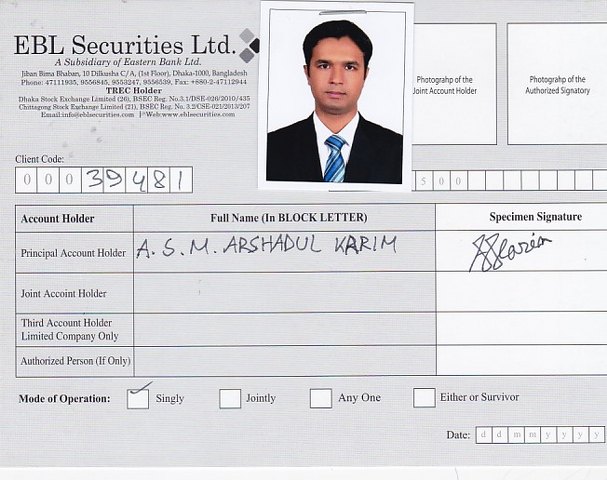 EBL Securities Ltd.
A Subsidiary of Eastern Bank Ltd.
Jiban Bima Bhaban, 10 Dilkusha C/A, (1st Floor), Dhaka-1000, Bangladesh
Phone: 47111935, 9556845, 9553247, 9556539, Fax: +880-2-47112944
TREC Holder
Dhaka Stock Exchange Limited (26), BSEC Reg. No.3.1/DSE-026/2010/435
Chittagong Stock Exchange Limited (21), BSEC Reg. No. 3.2/CSE-021/2013/207
Email:info@eblsecurities.com | Web:www.eblsecurities.com
Photograhp of the
Joint Account Holder
Photograhp of the
Authorized Signatory
Client Code:
0 0 0 3 9 4 8 1
5 0 0
Account Holder Full Name (In BLOCK LETTER) Specimen Signature
Principal Account Holder A. S. M. ARSHADUL KARIM
Joint Accoint Holder
Third Account Holder
Limited Company Only
Authorized Person (If Only)
Mode of Operation: Singly Jointly Any One Either or Survivor
Date: d d m m y y y y